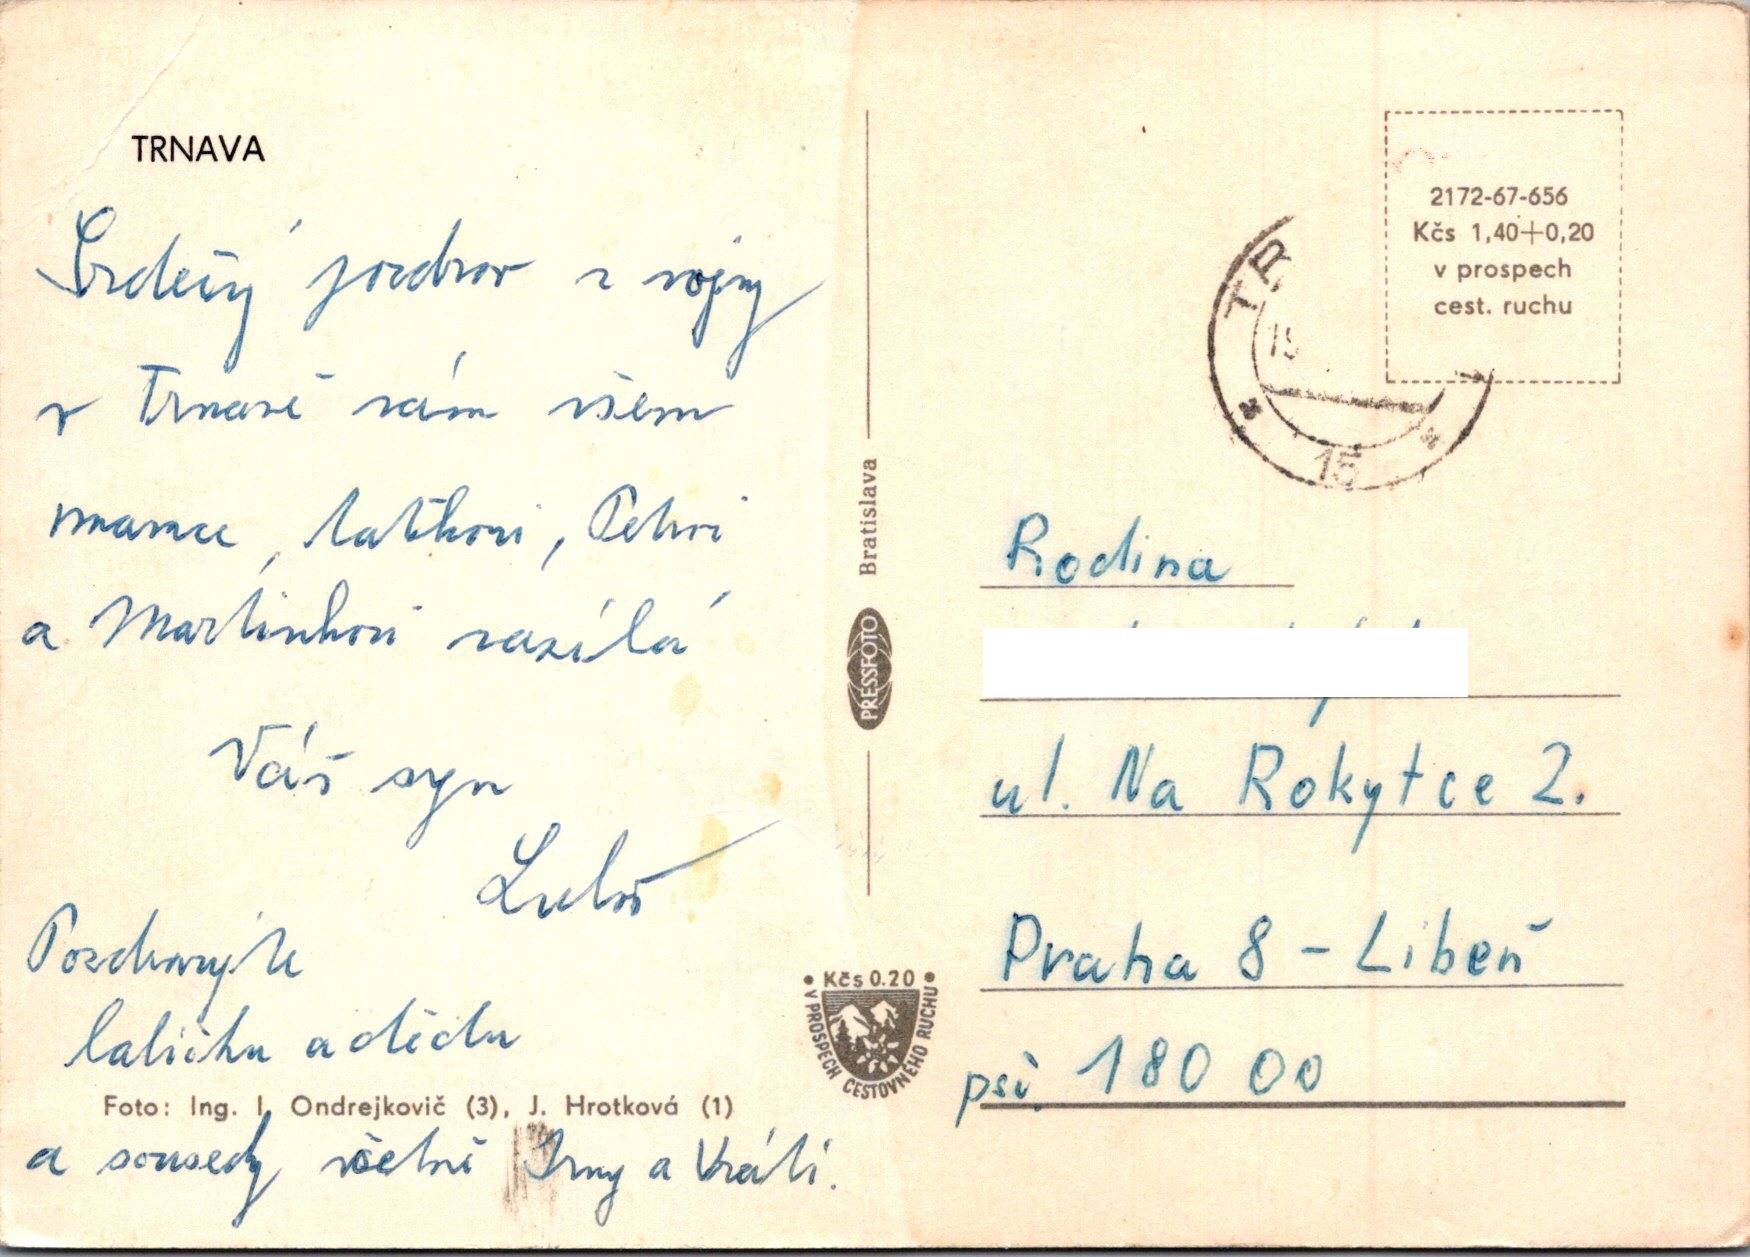 TRNAVA
Srdečný pozdrav z vojny
v Trnavě vám všem
mamce, taťkovi, Petrovi
a Martínkovi zasílá
Váš syn
Luboš
Pozdravujte
babičku a dědu
Foto: Ing. I. Ondrejkovič (3), J. Hrotková (1)
a sousedy včetně Irny a Vráti.
Bratislava
PRESSFOTO
Kčs 0.20
V PROSPECH CESTOVNÉHO RUCHU
2172-67-656
Kčs 1,40+0,20
v prospech
cest. ruchu
TR
15
Rodina
ul. Na Rokytce 2.
Praha 8 - Libeň
psč. 180 00